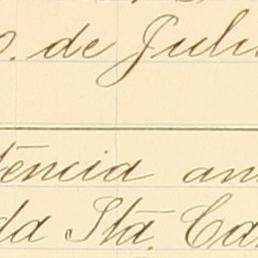 de Julh
tencia an
da Sta. Ca